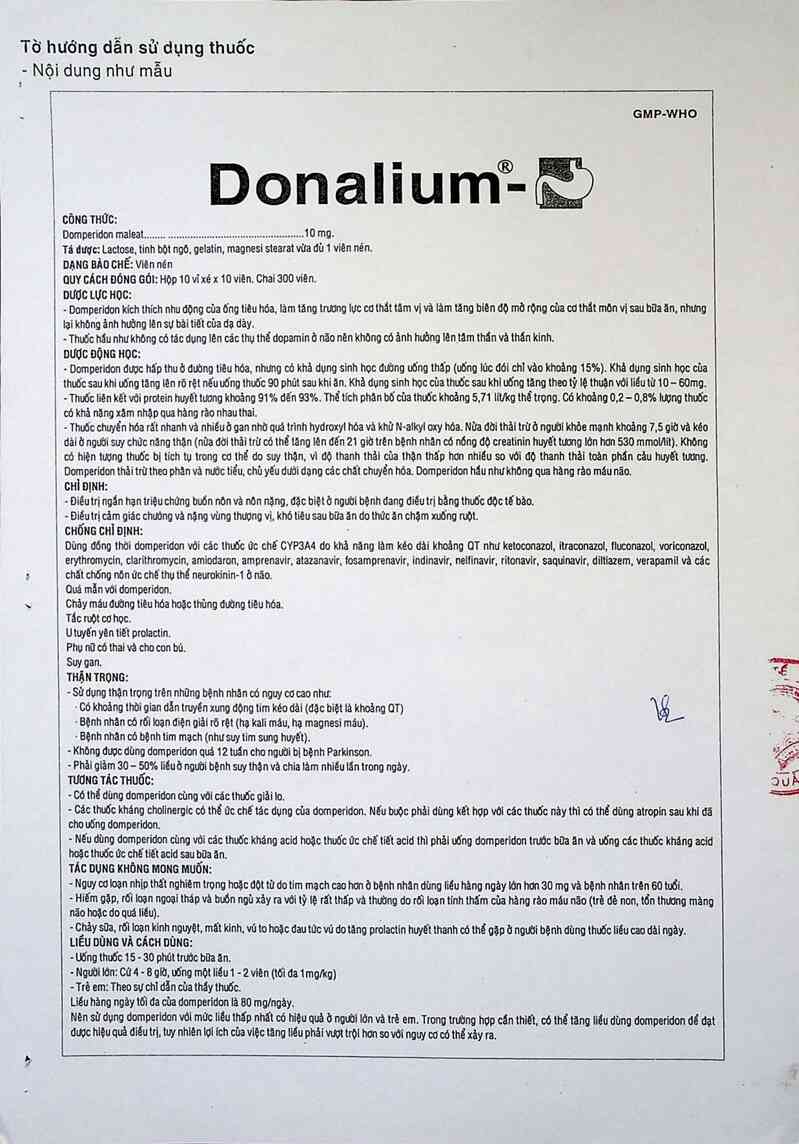 Tờ hướng dẫn sử dụng thuốc
- Nội dung như mẫu
GMP-WHO
Donalium®-
CÔNG THỨC:
Domperidon maleat........ ....................................................10 mg.
Tá dược: Lactose, tinh bột ngô, gelatin, magnesi stearat vừa đủ 1 viên nén.
DẠNG BÀO CHẾ: Viên nén
QUY CÁCH ĐÓNG GÓI: Hộp 10 vỉ xé x 10 viên. Chai 300 viên.
DƯỢC LỰC HỌC:
- Domperidon kích thích nhu động của ống tiêu hóa, làm tăng trương lực cơ thắt tâm vị và làm tăng biên độ mở rộng của cơ thắt môn vị sau bữa ăn, nhưng
lại không ảnh hưởng lên sự bài tiết của dạ dày.
- Thuốc hầu như không có tác dụng lên các thụ thể dopamin ở não nên không có ảnh hưởng lên tâm thần và thần kinh.
DƯỢC ĐỘNG HỌC:
- Domperidon được hấp thu ở đường tiêu hóa, nhưng có khả dụng sinh học đường uống thấp (uống lúc đói chỉ vào khoảng 15%). Khả dụng sinh học của
thuốc sau khi uống tăng lên rõ rệt nếu uống thuốc 90 phút sau khi ăn. Khả dụng sinh học của thuốc sau khi uống tăng theo tỷ lệ thuận với liều từ 10 – 60mg.
- Thuốc liên kết với protein huyết tương khoảng 91% đến 93%. Thể tích phân bố của thuốc khoảng 5,71 lít/kg thể trọng. Có khoảng 0,2 – 0,8% lượng thuốc
có khả năng xâm nhập qua hàng rào nhau thai.
- Thuốc chuyển hóa rất nhanh và nhiều ở gan nhờ quá trình hydroxyl hóa và khử N-alkyl oxy hóa. Nửa đời thải trừ ở người khỏe mạnh khoảng 7,5 giờ và kéo
dài ở người suy chức năng thận (nửa đời thải trừ có thể tăng lên đến 21 giờ trên bệnh nhân có nồng độ creatinin huyết tương lớn hơn 530 mmol/lít). Không
có hiện tượng thuốc bị tích tụ trong cơ thể do suy thận, vì độ thanh thải của thận thấp hơn nhiều so với độ thanh thải toàn phần câu huyết tương.
Domperidon thải trừ theo phân và nước tiểu, chủ yếu dưới dạng các chất chuyển hóa. Domperidon hầu như không qua hàng rào máu não.
CHỈ ĐỊNH:
- Điều trị ngắn hạn triệu chứng buồn nôn và nôn nặng, đặc biệt ở người bệnh đang điều trị bằng thuốc độc tế bào.
- Điều trị cảm giác chướng và nặng vùng thượng vị, khó tiêu sau bữa ăn do thức ăn chậm xuống ruột.
CHỐNG CHỈ ĐỊNH:
Dùng đồng thời domperidon với các thuốc ức chế CYP3A4 do khả năng làm kéo dài khoảng QT như ketoconazol, itraconazol, fluconazol, voriconazol,
erythromycin, clarithromycin, amiodaron, amprenavir, atazanavir, fosamprenavir, indinavir, nelfinavir, ritonavir, saquinavir, diltiazem, verapamil và các
chất chống nôn ức chế thụ thể neurokinin-1 ở não.
Quá mẫn với domperidon.
Chảy máu đường tiêu hóa hoặc thủng đường tiêu hóa.
Tắc ruột cơ học.
U tuyến yên tiết prolactin.
Phụ nữ có thai và cho con bú.
Suy gan.
THẬN TRỌNG:
- Sử dụng thận trọng trên những bệnh nhân có nguy cơ cao như:
· Có khoảng thời gian dẫn truyền xung động tim kéo dài (đặc biệt là khoảng QT)
· Bệnh nhân có rối loạn điện giải rõ rệt (hạ kali máu, hạ magnesi máu).
· Bệnh nhân có bệnh tim mạch (như suy tim sung huyết).
- Không được dùng domperidon quá 12 tuần cho người bị bệnh Parkinson.
- Phải giảm 30 – 50% liều ở người bệnh suy thận và chia làm nhiều lần trong ngày.
TƯƠNG TÁC THUỐC:
- Có thể dùng domperidon cùng với các thuốc giải lo.
- Các thuốc kháng cholinergic có thể ức chế tác dụng của domperidon. Nếu buộc phải dùng kết hợp với các thuốc này thì có thể dùng atropin sau khi đã
cho uống domperidon.
- Nếu dùng domperidon cùng với các thuốc kháng acid hoặc thuốc ức chế tiết acid thì phải uống domperidon trước bữa ăn và uống các thuốc kháng acid
hoặc thuốc ức chế tiết acid sau bữa ăn.
TÁC DỤNG KHÔNG MONG MUỐN:
- Nguy cơ loạn nhịp thất nghiêm trọng hoặc đột tử do tim mạch cao hơn ở bệnh nhân dùng liều hàng ngày lớn hơn 30 mg và bệnh nhân trên 60 tuổi.
- Hiếm gặp, rối loạn ngoại tháp và buồn ngủ xảy ra với tỷ lệ rất thấp và thường do rối loạn tính thấm của hàng rào máu não (trẻ đẻ non, tổn thương màng
não hoặc do quá liều).
- Chảy sữa, rối loạn kinh nguyệt, mất kinh, vú to hoặc đau tức vú do tăng prolactin huyết thanh có thể gặp ở người bệnh dùng thuốc liều cao dài ngày.
LIỀU DÙNG VÀ CÁCH DÙNG:
- Uống thuốc 15 - 30 phút trước bữa ăn.
- Người lớn: Cứ 4 - 8 giờ, uống một liều 1 - 2 viên (tối đa 1mg/kg)
- Trẻ em: Theo sự chỉ dẫn của thầy thuốc.
Liều hàng ngày tối đa của domperidon là 80 mg/ngày.
Nên sử dụng domperidon với mức liều thấp nhất có hiệu quả ở người lớn và trẻ em. Trong trường hợp cần thiết, có thể tăng liều dùng domperidon để đạt
được hiệu quả điều trị, tuy nhiên lợi ích của việc tăng liều phải vượt trội hơn so với nguy cơ có thể xảy ra.